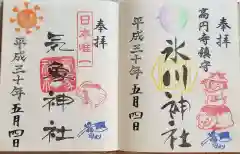 高円寺鎮守
奉拝
氷川神社
平成三十年五月四日
奉拝
日本唯一
気象神社
平成三十年五月四日